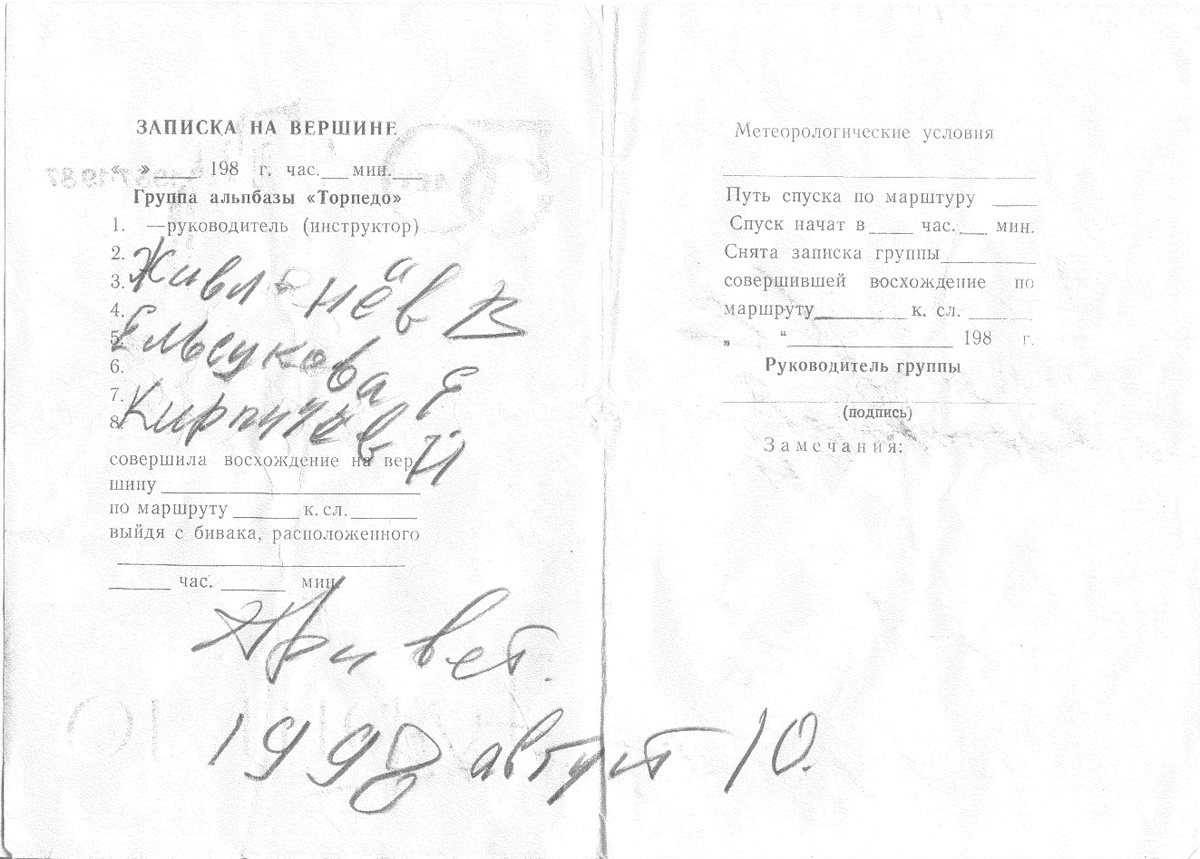 ЗАПИСКА НА ВЕРШИНЕ
« » ____ 198 г. час.___ мин.___
Группа альпбазы «Торпедо»
1. —руководитель (инструктор)
2.
Живл нёв В
3.
4.
Ельсукова Е
5.
6.
7.
Кирпичёв И
8.
совершила восхождение на вер-
шину ____________
по маршруту ______ к. сл. ______
выйдя с бивака, расположенного
____________
______ час. ______ мин.
Привет.
1998 август 10.
Метеорологические условия
____________
Путь спуска по марштуру ____
Спуск начат в ____ час.___ мин.
Снята записка группы________
совершившей восхождение по
маршруту________ к. сл. ______
„ “____________ 198 г.
Руководитель группы
____________
(подпись)
Замечания: